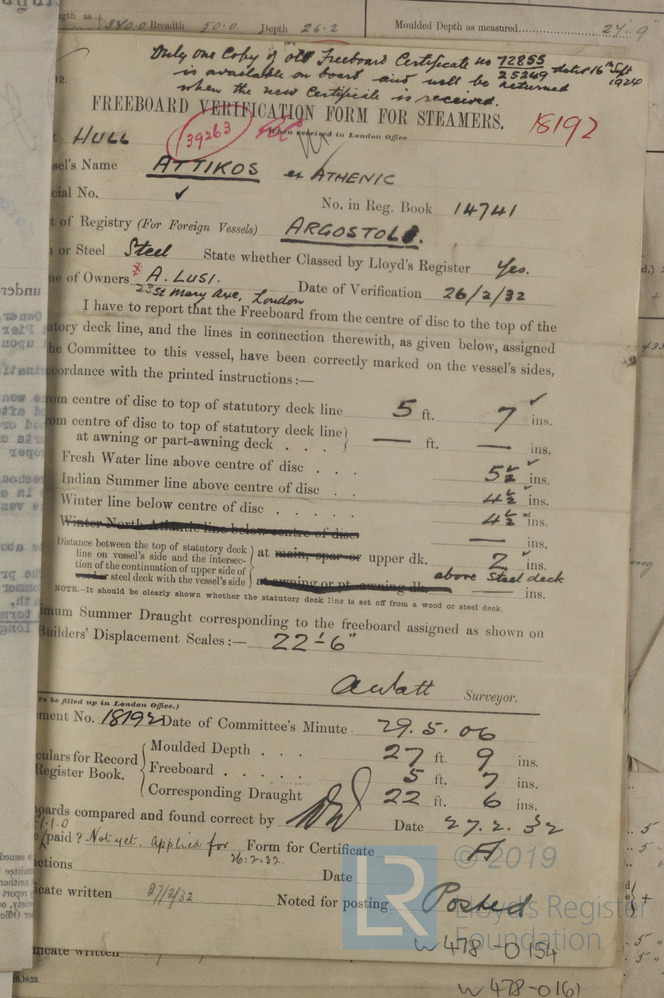 340.0 Breadth 50.0 Depth 26.2 Moulded Depth as measured 27.9
Only one Copy of old Freeboard Certificate no 72855
25249 dated 16th Sept 1924
is available on board and will be returned
when the new Certificate is received.
FREEBOARD VERIFICATION FORM FOR STEAMERS.
18192
39263
When received in London Office
HULL
sel's Name ATTIKOS ex ATHENIC
cial No. ✓ No. in Reg. Book 14741
of Registry (For Foreign Vessels) ARGOSTOLI.
or Steel Steel State whether Classed by Lloyd's Register Yes.
ne of Owners * A. LUSI. Date of Verification 26/2/32
23 St Mary Axe, London
I have to report that the Freeboard from the centre of disc to the top of the
utory deck line, and the lines in connection therewith, as given below, assigned
the Committee to this vessel, have been correctly marked on the vessel's sides,
cordance with the printed instructions:—
om centre of disc to top of statutory deck line 5 ft. 7 ✓ ins.
om centre of disc to top of statutory deck line
at awning or part-awning deck . . . — ft. — ins.
Fresh Water line above centre of disc . . . 5½ ✓ ins.
Indian Summer line above centre of disc . . . 4½ ✓ ins.
Winter line below centre of disc . . . . . 4½ ✓ ins.
Winter North Atlantic line below centre of disc — ins.
Distance between the top of statutory deck
line on vessel's side and the intersec-
tion of the continuation of upper side of
wood or steel deck with the vessel's side
at main, spar or upper dk. 2 ✓ ins.
above Steel deck
at awning or pt. awning dk. — ins.
NOTE.—It should be clearly shown whether the statutory deck line is set off from a wood or steel deck.
imum Summer Draught corresponding to the freeboard assigned as shown on
uilders' Displacement Scales:— 22'-6"
A Watt Surveyor.
To be filled up in London Office.)
ment No. 18192 Date of Committee's Minute 29.5.06
culars for Record
Register Book.
Moulded Depth . . . 27 ft. 9 ins.
Freeboard . . . . . 5 ft. 7 ins.
Corresponding Draught 22 ft. 6 ins.
oards compared and found correct by Date 27.2.32
1-1-0
paid? Not yet. Applied for Form for Certificate A
26.2.32
ctions Date
icate written 27/2/32 Noted for posting Posted
© 2019
LR
Lloyd's Register
Foundation
W478-0154
icate written
W478-0161